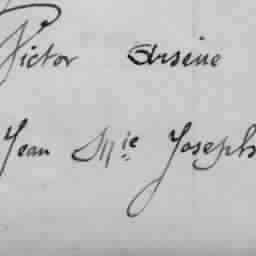 Victor Arsène
Jean Mie Joseph